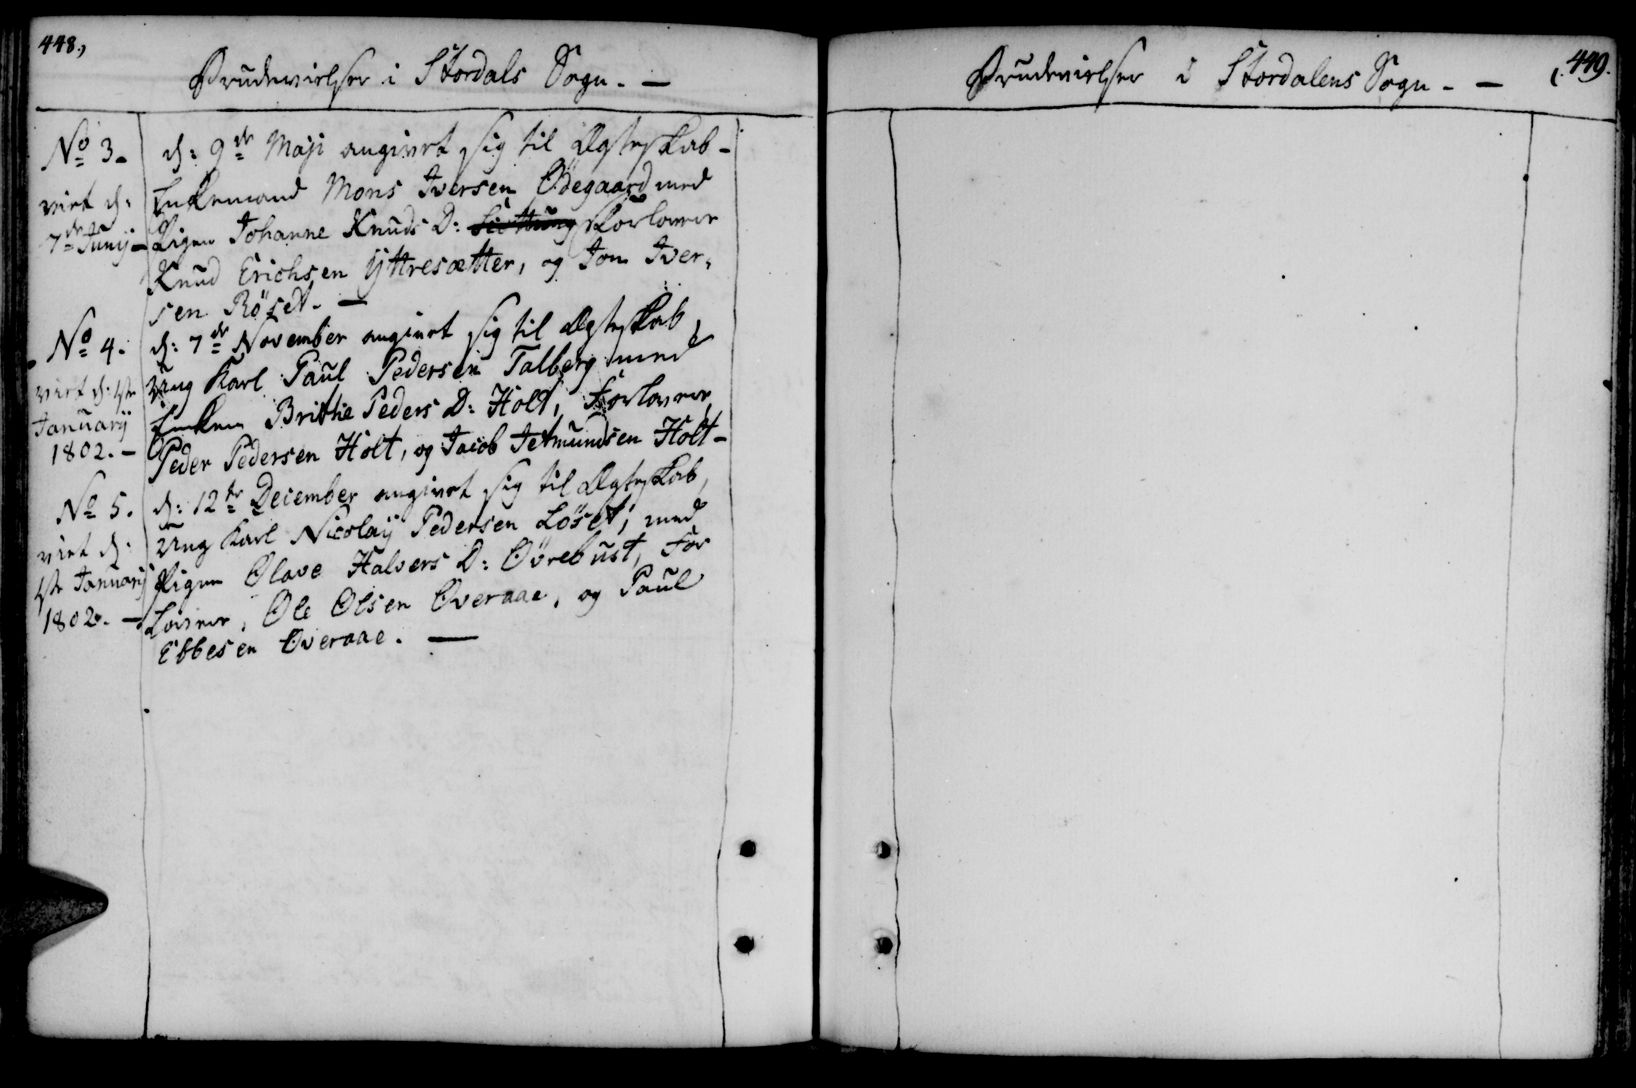 448.)
Brudevielser i Stordals Sogn. —
No 3.
viet d:
7de Junij —
d: 9de Maji angivet sig til Ægteskab -
Enkemand Mons Iversen Ødegaard med
Pigen Johanne Knuds D: Forlovere
Knud Erichsen Yttresætter, og Jon Iver,
sen Röset. —
No 4.
viet d: 1ste
Januarij
1802. —
d: 7de November angivet sig til Ægteskab,
Ung Karl Paul Pedersen Talberg med
Enken Brithe Peders D: Holt, Forlovere
Peder Pedersen Holt, og Jacob Jetmundsen Holt -
No 5.
viet d:
1ste Januarij
1802. —
d: 12te December angivet sig til Ægteskab,
Ung Karl Nicolaij Pedersen Löset, med
Pigen Olave Halvers D: Øvrebust, For
Lovere, Ole Olsen Overaae, og Paul
Ebbesen Overaae. —
Brudevielser i Stordalens Sogn - —
(449.